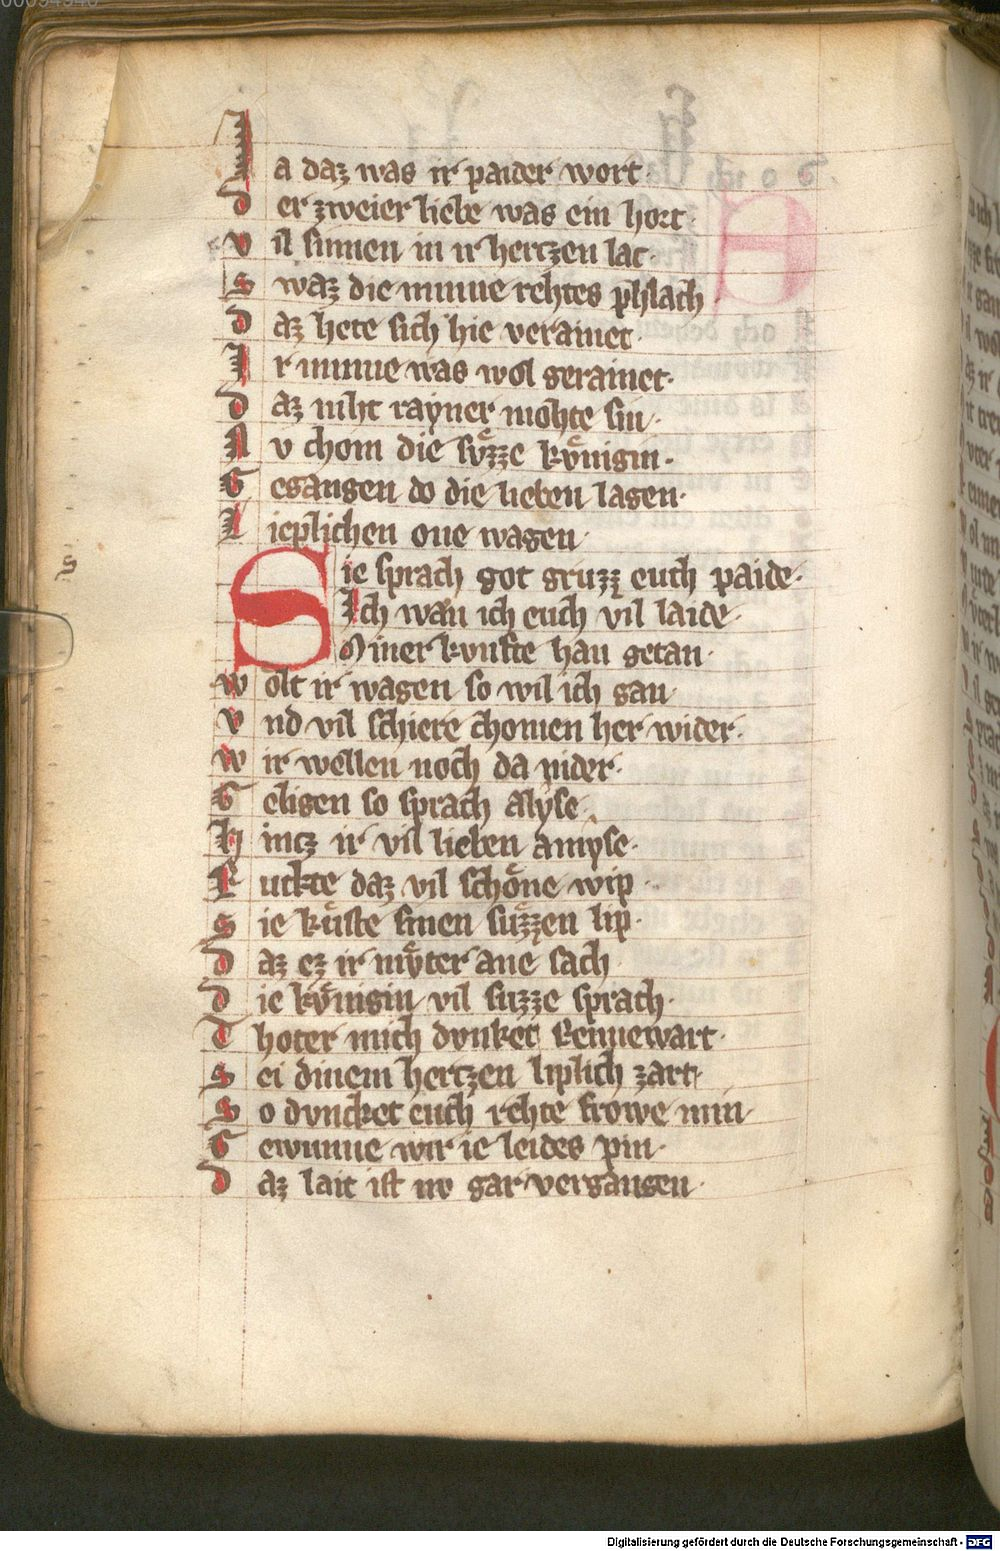 Ja daz was ir paider wort
der zweier liebe was ein hort
vil sinnen in ir hertzen lac
swaz die minne rehtes phlach
daz hete sich hie verainet·
Ir minne was wol gerainet·
daz niht rayner mohte sin·
Nv chom die svͤzze kvͤnigin·
Gegangen do die lieben lagen·
Lieplichen one wagen·
Sie sprach got gruzz euch paide·
Ich wan ich euch vil laide·
Miner kvnfte han getan·
wolt ir wagen so wil ich gan
vnd vil schiere chomen her wider·
wir wellen noch da nider·
Geligen so sprach Alyse·
Hintz ir vil lieben amyse·
Ruckte daz vil schoͤne wip·
sie kuͤste sinen suͤzzen lip·
daz ez ir muͤter ane sach
die kvͤnigin vil suzze sprach·
Thoter mich dvnket Rennewart·
sei dinem hertzen liplich zart·
So dvncket euch rehte frowe min·
Gewinne wir ie leides pin·
daz lait ist nv gar vergangen·
s
Digitalisierung gefördert durch die Deutsche Forschungsgemeinschaft - DFG